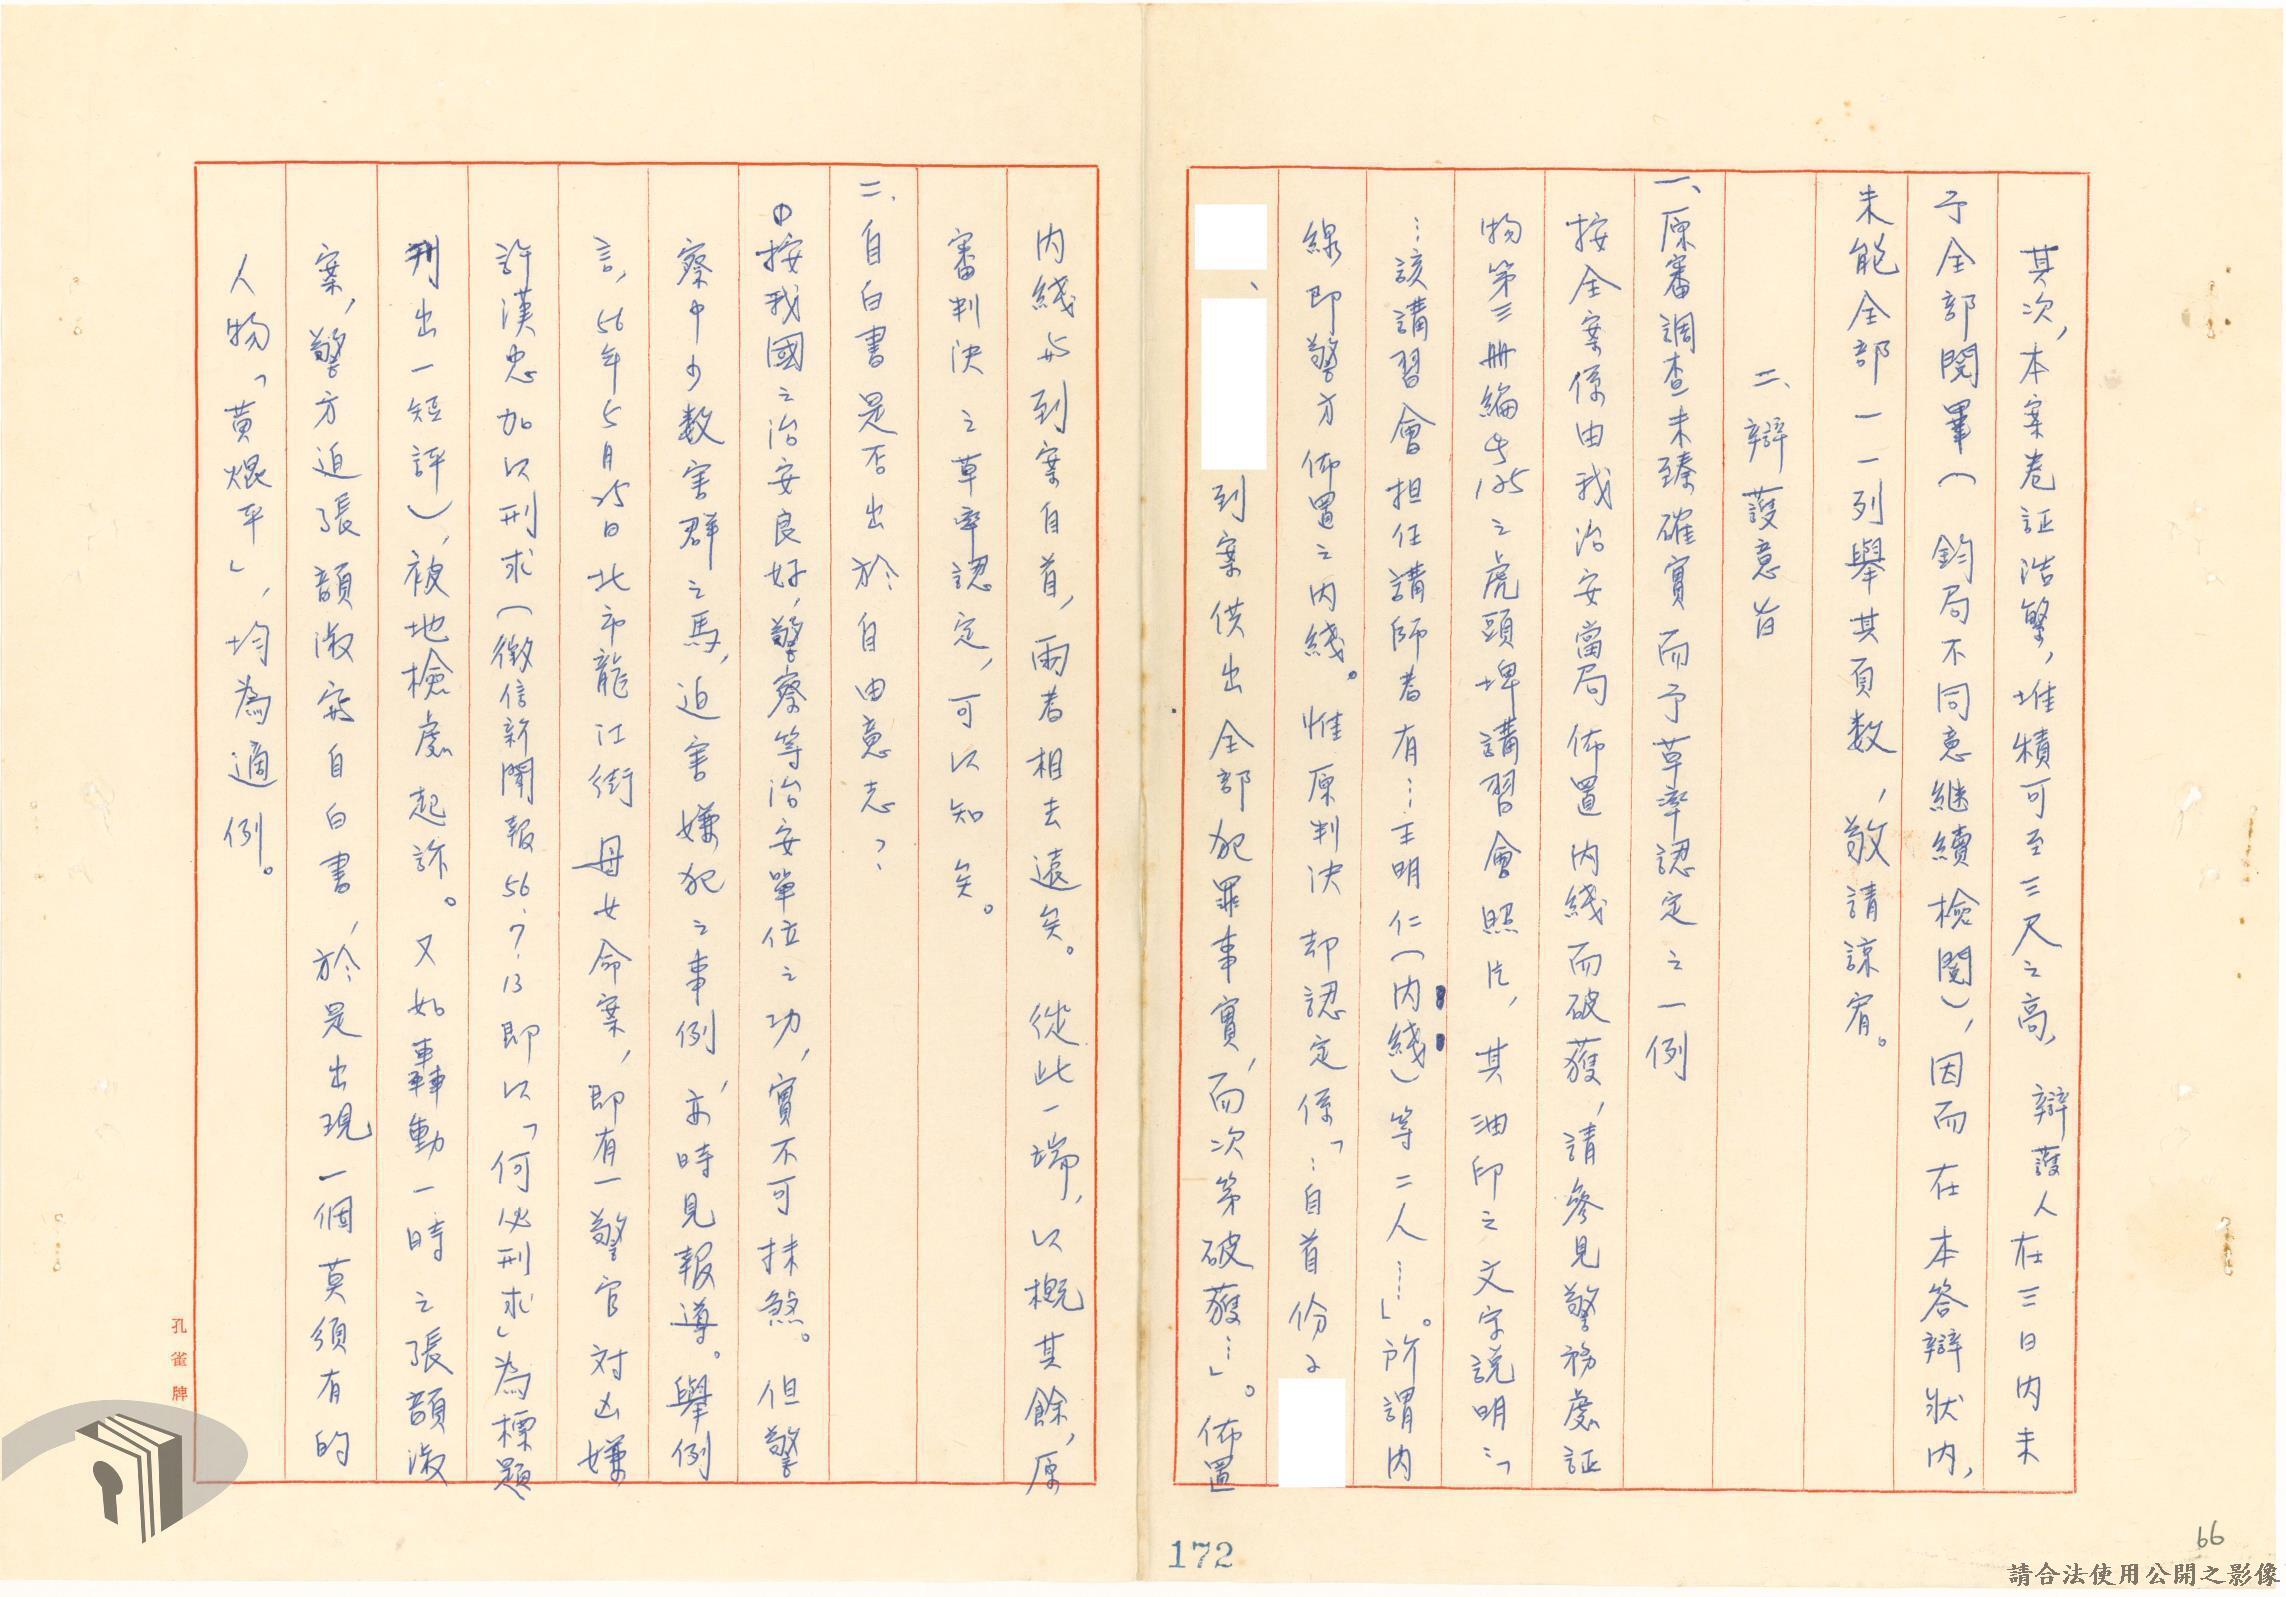 其次，本案卷証浩繁，堆積可至三尺之高，辯護人在三日內未
予全部閱畢（鈞局不同意継續檢閱），因而在本答辯狀內，
未能全部一一列舉其頁数，敬請諒宥。
二、辯護意旨
一、原審調查未臻確實而予草率認定之一例
按全案係由我治安當局佈置內綫而破獲，請參見警務處証
物第三冊編号125之虎頭埤講習會照片，其油印之文字説明：「
…該講習會担任講師者有…王明仁（內綫）等二人……」。所謂內
線即警方佈置之內綫。惟原判決却認定係「…自首份子
、到案供出全部犯罪事實，而次第破獲…」。佈置
內綫与到案自首，兩者相去遠矣。從此一端，以概其餘，原
審判決之草率認定，可以知矣。
二、自白書是否出於自由意志？
①按我國之治安良好，警察等治安單位之功，實不可抹煞。但警
察中少数害群之馬，迫害嫌犯之事例，亦時見報導。舉例
言，56年5月25日北市龍江街母女命案，即有一警官対凶嫌
許漢忠加以刑求（徵信新聞報56.7.13即以「何必刑求」為標題
刊出一短評），被地檢處起訴。又如轟動一時之張韻淑
案，警方迫張韻淑寫自白書，於是出現一個莫須有的
人物「黃焜平」，均為適例。
孔雀牌
172
66
請合法使用公開之影像